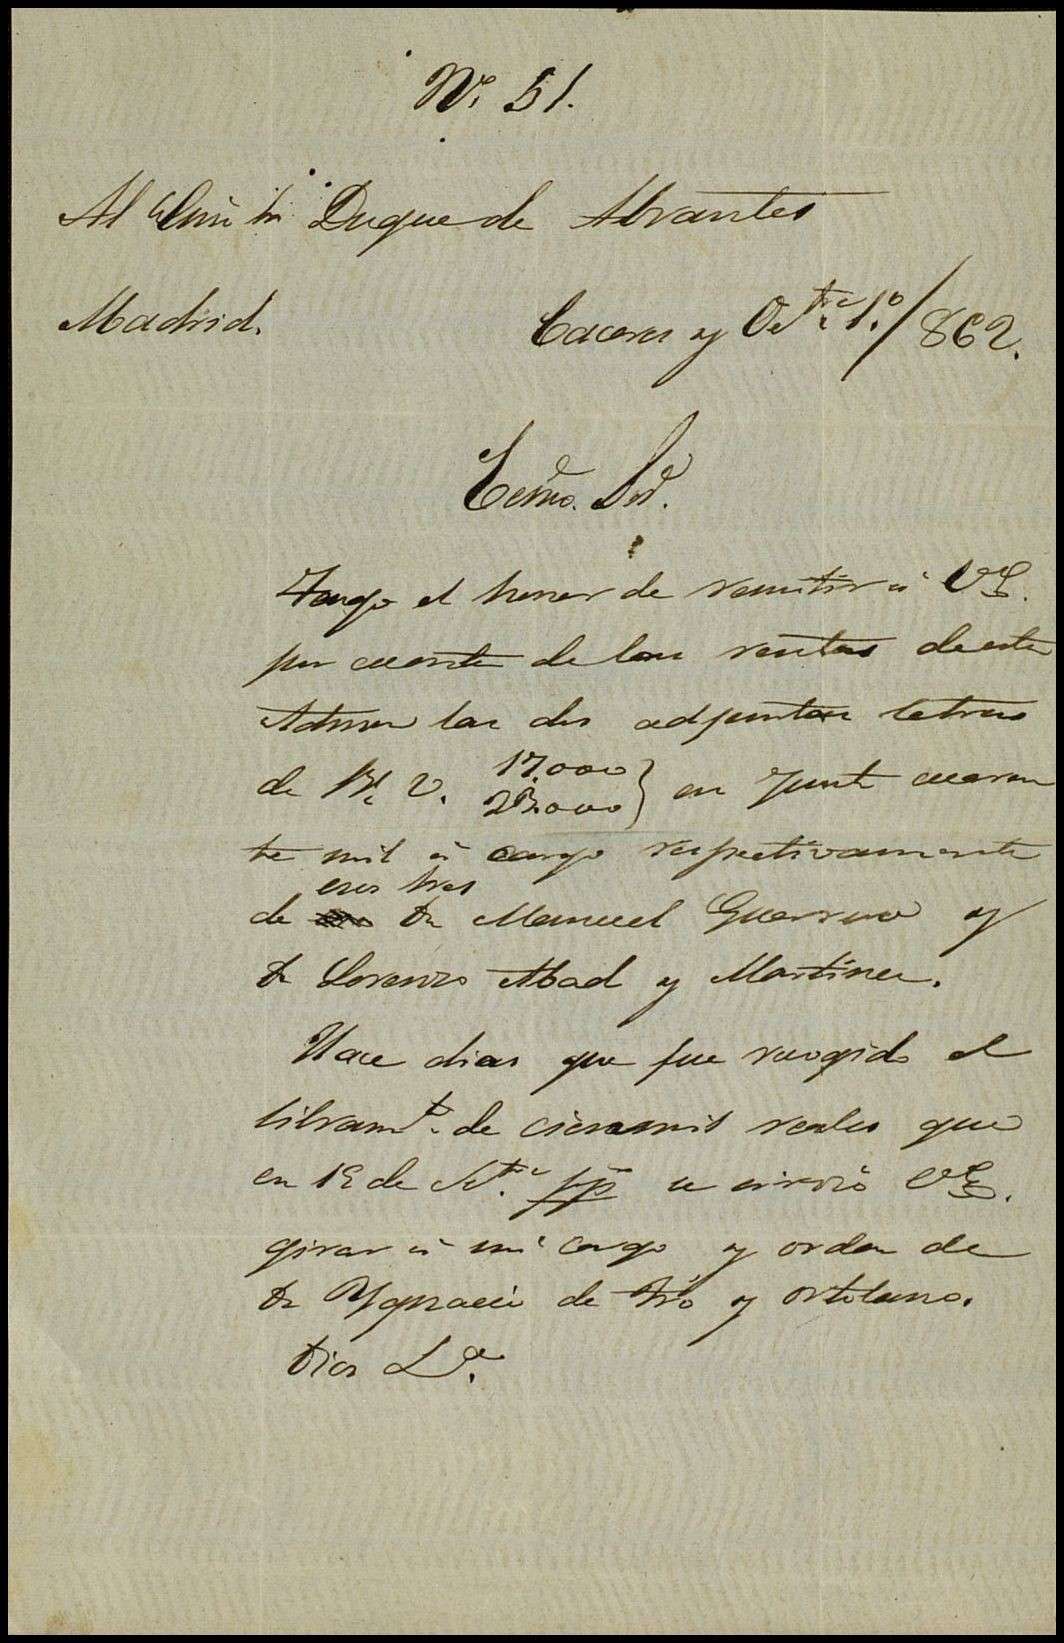 Nº 51.
Al Duque de Abrantes
Madrid.
Caceres y Octe. 1º/862.
Ecsmo. Sor.
Tengo el honor de remitir á VE.
por cuenta de las rentas de esta
Admon las dos adjuntas letras
de Rs. V. 17.000
23.000 } en junto cuaren
ta mil á cargo respectivamente
esos Sres
de Dn Manuel Guerrero y
Dn Lorenzo Abad y Martinez.
Hace dias que fue recogido el
libramto. de mil reales que
en de Ste. pp se sirvió VE.
girar á mi cargo y orden de
Dn Ygnacio de Tro y Ortolano.
Dios La.